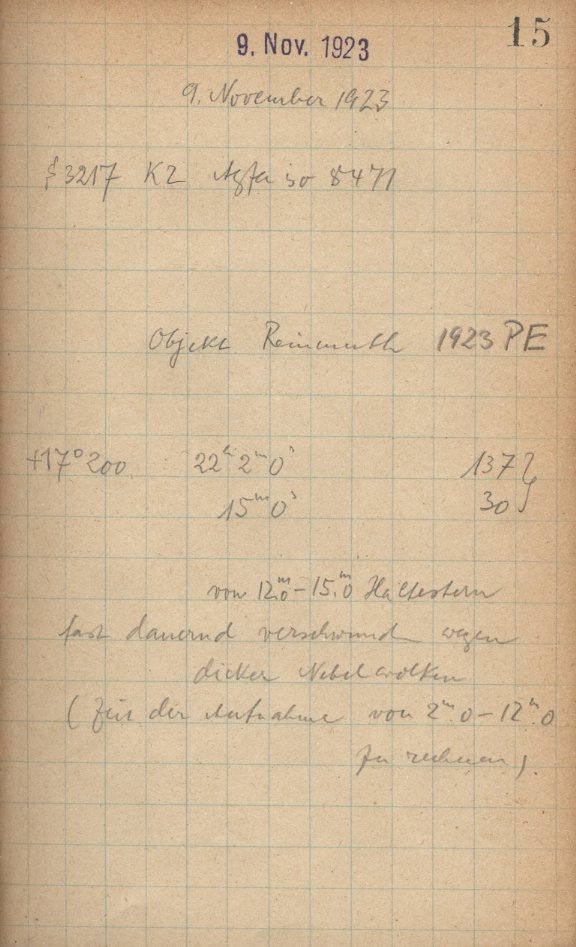 15
9. Nov. 1923
9. November 1923
3217 K2 Agfa iso 8471
Objekt Reinmuth 1923 PE
+17° 200 22ʰ 2ᵐ 0ˢ 137 }
15ᵐ 0ˢ 30 }
von 12ᵐ.0 – 15ᵐ.0 Haltestern
fast dauernd verschwund wegen
dicker Nebelwolken
(Zeit der Aufnahme von 2ᵐ.0 – 12ᵐ.0
zu rechnen).